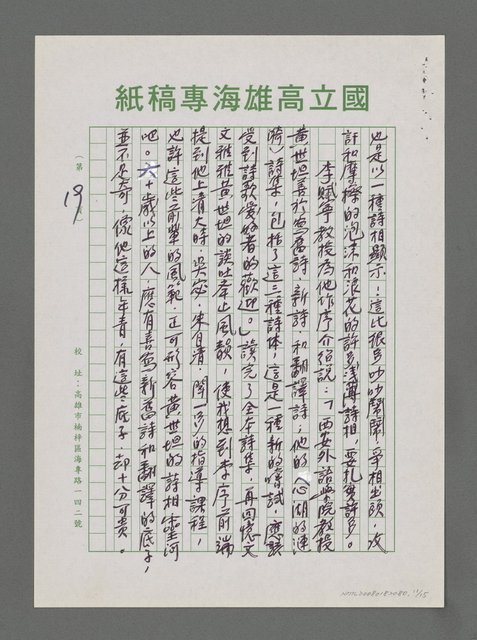 國立高雄海專稿紙
也是以一種詩相顯示!這比很多吵吵鬧鬧,爭相出頭,攻
訐和摩擦的泡沫和浪花的許多淺薄詩相,要扎實許多。
李賦寧教授為他作序介紹說:「西安外語學院教授
黃世坦善於寫舊詩、新詩、和翻譯詩;他的《心湖的漣
漪》詩集,包括了這三種詩体,這是一種新的嘗試,應該
受到詩歌愛好者的歡迎。」讀完了全本詩集,再回憶文
文雅雅黃世坦的談吐舉止風韻,使我想到李序前端
提到他上清大時吳宓、朱自清、聞一多的指導課程,
也許這些前輩的風範,正可形容黃世坦的詩相
吧。六十歲以上的人,應有善寫新舊詩和翻譯的底子,
並不足奇,像他這樣年青,有這些底子,却十分可貴。
(第
19
校址:高雄市楠梓區海專路一四二號
NMTL20080182080, 11/15